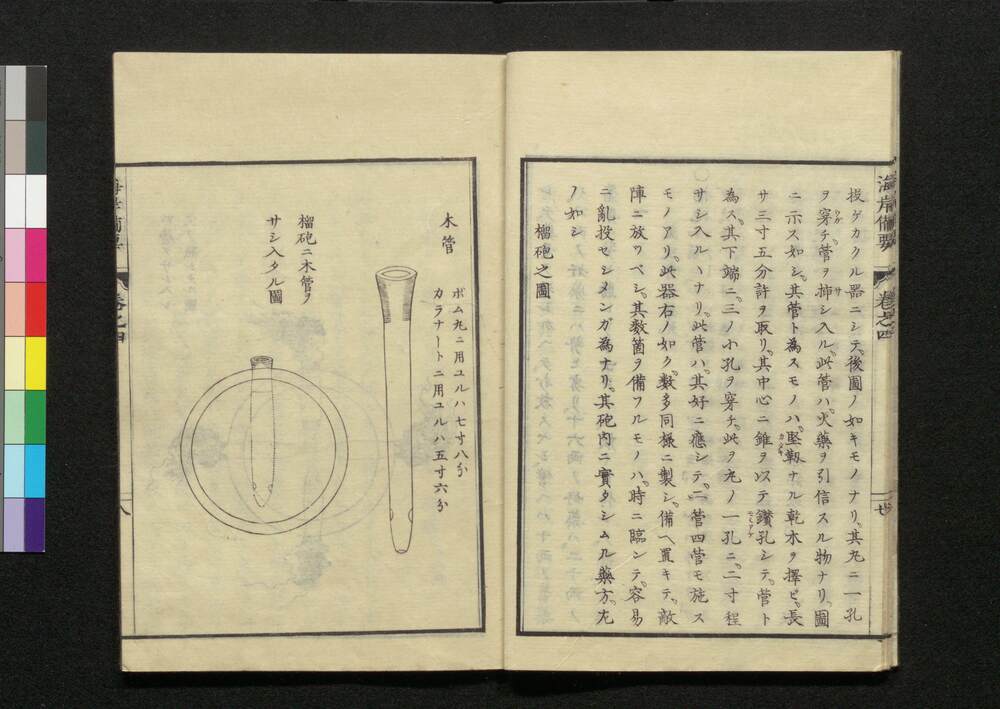 海岸備要 卷之四 廿
投ゲカクル器ニシテ後圖ノ如キモノナリ其丸ニ一孔
ヲ穿チ管ヲ挿シ入ル此管ハ火藥ヲ引信スル物ナリ圖
ニ示ス如シ其管ト為スモノハ堅靱ナル乾木ヲ擇ビ長
サ三寸五分許ヲ取リ其中心ニ錐ヲ以テ鑽孔シテ管ト
為ス其下端ニ三ノ小孔ヲ穿チ此ヲ丸ノ一孔ニ二寸程
サシ入ルヽナリ此管ハ其好ニ應シテ二管四管モ施ス
モノアリ此器右ノ如ク數多同樣ニ製シ備ヘ置キテ敵
陣ニ放ツベシ其數箇ヲ備フルモノハ時ニ臨ンテ容易
ニ亂投セシメンガ為ナリ其砲内ニ實タシムル藥方左
ノ如シ
榴砲之圖
木管
ボム丸ニ用ユルハ七寸八分
カラナートニ用ユルハ五寸六分
榴砲ニ木管ヲ
サシ入タル圖